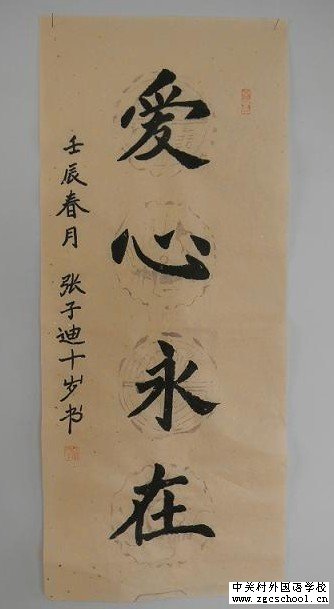 爱心永在
壬辰春月 张子迪十岁书
中关村外国语学校
www.zgcschool.cn